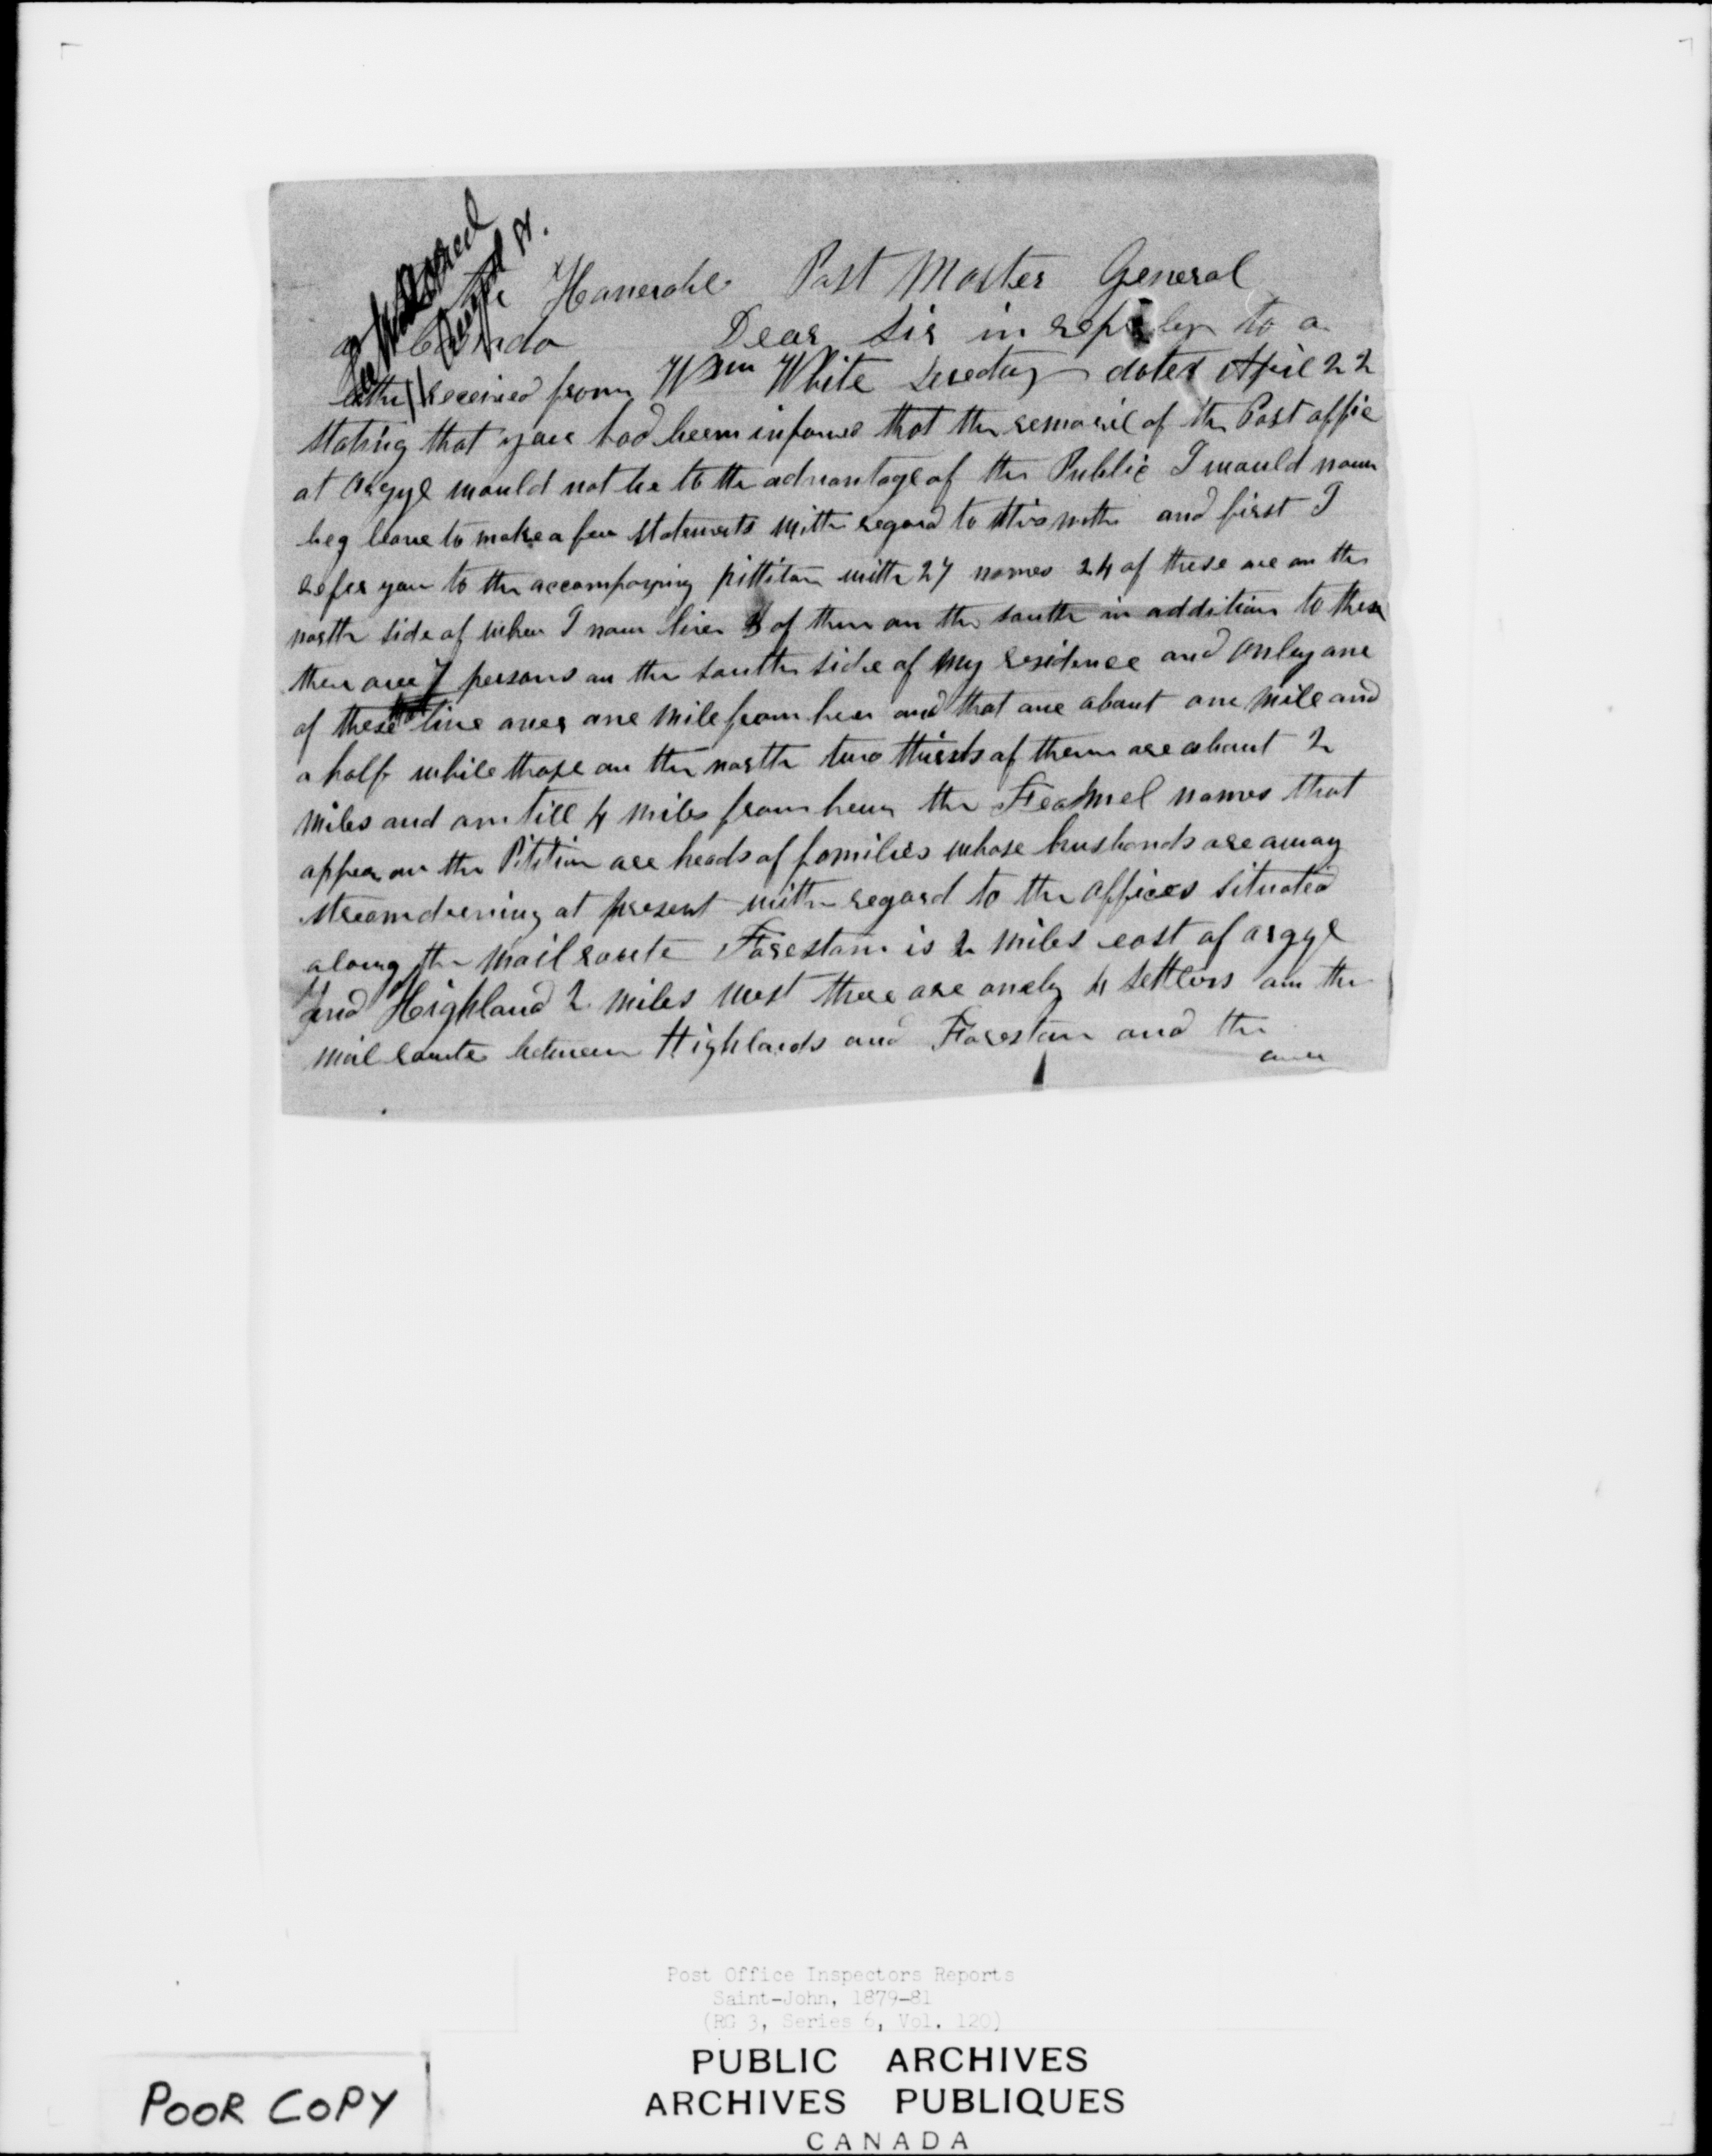 the Honerable Post Master General
of Canda Dear Sir in reply to a
letter received from Wm White Secretay dated April 22
stating that you had beem informed that the removiel of the Post offic
at Argyl would not be to the advantage of the Public I would now
beg leave to make a few statements with regard to this and first I
refer you to the accompaying pittiton with 27 names 24 of these are on the
north side of wher I now live 3 of them on the south in addition to these
ther are 7 persons on the south side of my residence and only one
of these live over one mile from her and that one about one mile and
a half while those on the north two thirds of them are about 2
miles and on till 4 miles from her the Feamel names that
appear on the Pitition are heads of families whose husbands are away
streamdriving at present with regard to the offices situated
along the mail route Foreston is 2 miles east of argyl
and Highland 2 miles west there are onely 4 settlers on the
mail route between Highlands and Foreston and the
over
Post Office Inspectors Reports
Saint-John, 1879-81
(RG 3, Series 6, Vol. 120)
PUBLIC ARCHIVES
ARCHIVES PUBLIQUES
CANADA
POOR COPY